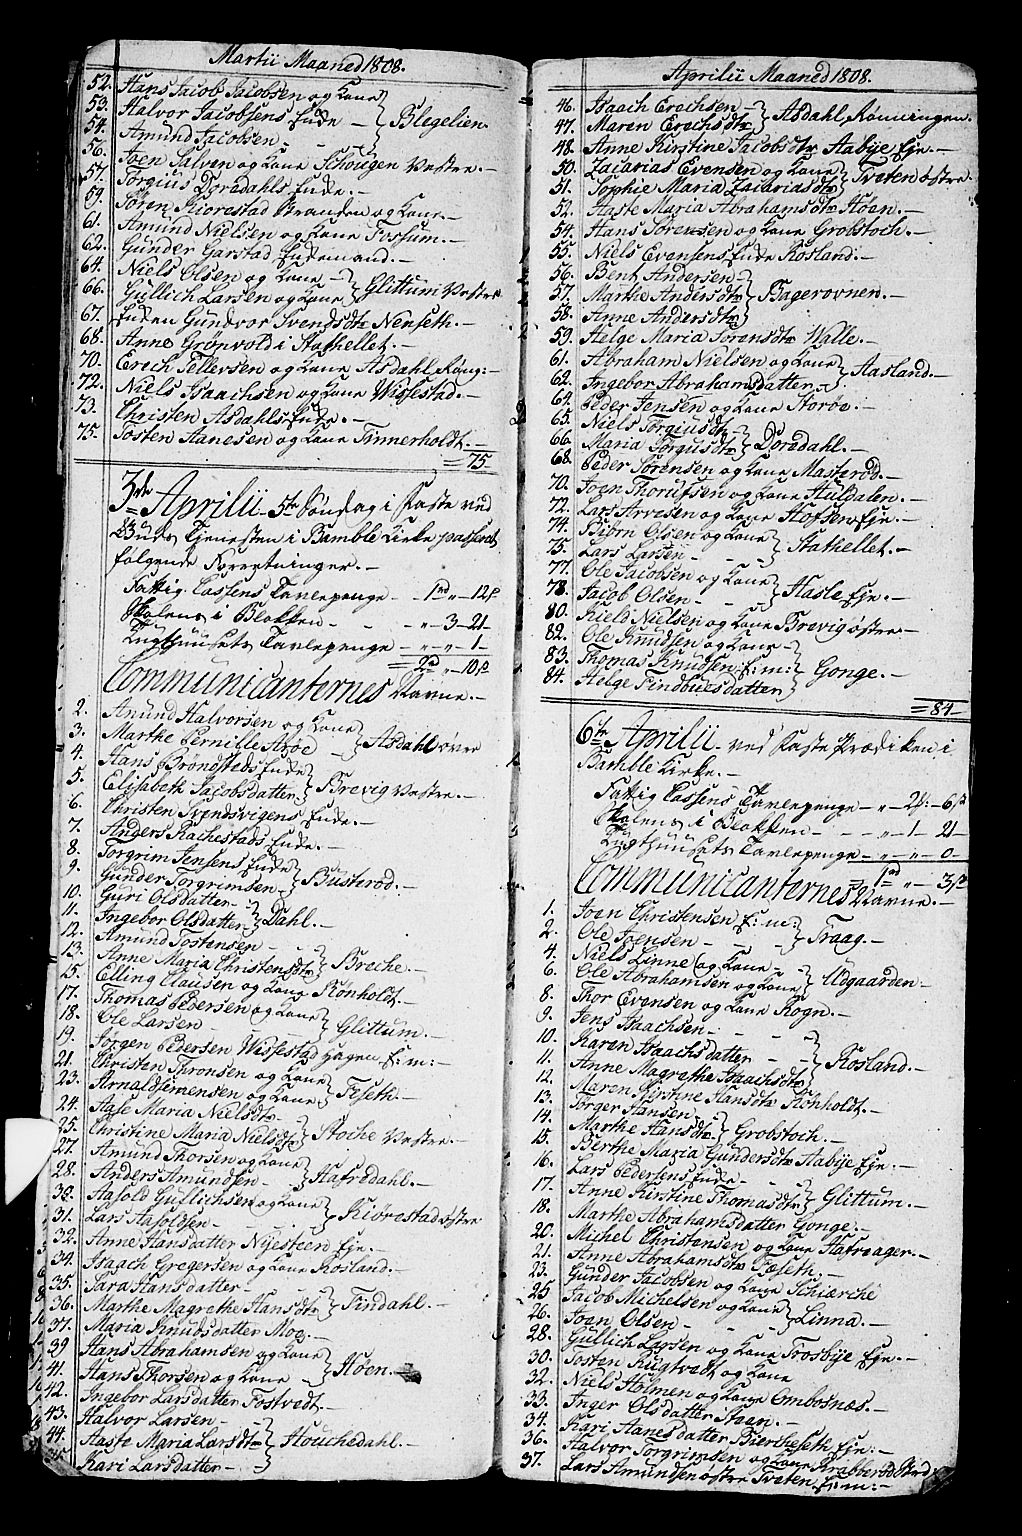 Martii Maaned 1808.
52. Hans Jacob Jacobsen og Kone
53. Halvor Jacobsens Enke -
54. Amund Jacobsen - Blegelien
56. Joen Halvorsen og Kone Schougen Vestre. -
57. Torgius Doredahls Enke. -
59. Søren Kiørestad Stranden og Kone -
61. Amund Nielsen og Kone Fossum. -
62. Gunder Garstad Enkemand. -
64. Niels Olsen og Kone -
66. Gullich Larsen og Kone Glittum Vestre
67. Enken Gundvor Svendsdtr Nenseth. -
68. Anne Grönvold i Stathellet. -
70. Erich Tellevsen og Kone Asdahl Røng: -
72. Niels Isaachsen og Kone Wissestad. -
73. Christen Asdahls Enke. -
75. Tosten Aanesen og Kone Tinnerholdt. -
= 75.
3de Aprilii 5te Søndag i Faste ved
Guds Tienesten i Bamble Kirke passeret
følgende Forretninger. -
Fattig Cassens Tavlepenge - 1rd " 12s
Skolens i Blokken - - - " 3 - 21 -
Tugthuusets Tavlepenge - " - " - 1 -
= 2rd " 10s
Communicanternes Navne. -
2. Amund Halvorsen og Kone
3. Marthe Pernille Arøe - Asdahl øvre
4. Hans Brongsteds Enke
5. Elisabeth Jacobsdatter Brevig Vestre. -
6. Christen Svendsvigens Enke. -
7. Anders Rachestads Enke. -
8. Torgrim Jensens Enke
9. Gunder Torgrimsen - Busterød. -
10. Guri Olsdatter -
11. Ingebor Olsdatter Dahl. -
12. Amund Tostensen -
13. Anne Maria Christensdtr Breche. -
15. Elling Clausen og Kone Rönholdt. -
17. Thomas Pedersen og Kone
18. Ole Larsen - Glittum. -
19. Jørgen Pedersen Wissestad Hagen E: m: -
21. Christen Thronsen og Kone
23. Arnald Simensen og Kone Feseth. -
24. Aase Maria Nielsdtr
25. Christine Maria Nielsdtr Stoche Vestre. -
27. Amund Thorsen og Kone
28. Anders Amundsen - Hafredahl. -
30. Aasold Gullichsen og Kone
31. Lars Aasoldsen - Kiørestad østre
32. Anne Hansdatter Nyesteen Eje. -
34. Isaach Gregersen og Kone Rosland. -
35. Sara Hansdatter -
36. Marthe Magrethe Hansdtr Findahl. -
37. Maria Knudsdatter Moe. -
39 Hans Abrahamsen og Kone
41. Hans Thorsen og Kone - Høen. -
42. Ingebor Larsdatter Fostvedt. -
43. Halvor Larsen -
44. Aaste Maria Larsdtr Flouchedahl. -
45. Kari Larsdatter -
Aprilii Maaned 1808.
46. Isaach Erechsen -
47. Maren Erechsdtr Asdahl Rönningen.
48. Anne Kirstine Jacobsdtr Aabye Eje. -
50. Zacarias Evensen og Kone
51. Sophie Maria Zacariasdtr Tveten østre.
52. Aaste Maria Abrahamsdtr Høen. -
54. Hans Sørensen og Kone Grobstoch. -
55. Niels Evensens Enke Rosland. -
56. Bent Andersen
57. Marthe Andersdtr Bagerovnen. -
58. Anne Andersdtr
59. Helge Maria Sørensdtr Walle. -
61. Abraham Nielsen og Kone
62. Ingebor Abrahamsdatter Aasland. -
64. Peder Jensen og Kone Storøe. -
65. Niels Torgiusdt -
66. Maria Torgiusdtr Doredahl. -
68. Peder Sørensen og Kone Masterød. -
70. Joen Thorufsen og Kone Huldalen. -
72. Lars Arvesen og Kone Hofsen Eje. -
74. Biørn Olsen og Kone
75. Lars Larsen - Stathellet. -
77. Ole Jacobsen og Kone
78. Jacob Olsen - Hasle Eje. -
80. Kield Nielsen og Kone Brevig østre. -
82. Ole Knudsen og Kone -
83. Thomas Knudsen E: m: Gonge. -
84. Helge Findbuesdatter
= 84 -
6te Aprilii ved Faste Prædiken i
Bamble Kirke. -
Fattig Cassens Tavlepenge - " - 2s: - 6s
Skolens i Blokken - - - " - 1 - 21 -
Tugthuusets Tavlepenge - " - " - 0 -
= 1rd " - 3s
Communicanternes Navne. -
1. Joen Christensen E: m:
2. Ole Joensen - Traag. -
4. Niels Linne og Kone
6. Ole Abrahamsen og Kone Udgaarden -
8. Thor Evensen og Kone Rogn. -
9. Jens Isaachsen -
10. Karen Isaachsdatter -
11. Anne Magrethe Isaachsdtr Rosland. -
12. Maren Kirstine Hansdtr Rönholdt. -
13. Torger Hansen -
14. Marthe Hansdtr Grobstoch. -
15. Berthe Maria Gundersdtr Aabye Eje. -
16. Lars Pedersens Enke -
17. Anne Kirstine Thomasdtr Glittum. -
18. Marthe Abrahamsdatter Gonge. -
20. Michel Christensen og Kone Hafraager. -
21. Anne Abrahamsdtr Feseth. -
23. Gunder Jacobsen og Kone Schierche
25 Jacob Michelsen og Kone
26. Joen Olsen - Linna. -
28. Gullich Larsen og Kone Trosbye Eje. -
30. Tosten Rugtvedt og Kone
32. Niels Holmen og Kone Ombosnæs. -
33. Inger Olsdatter Staen. -
34. Kari Aanesdatter Biercheseth Eje: -
36. Halvor Torgrimsen og Kone Krabberød Østre
37. Lars Amundsen østre Tveten E: m: -